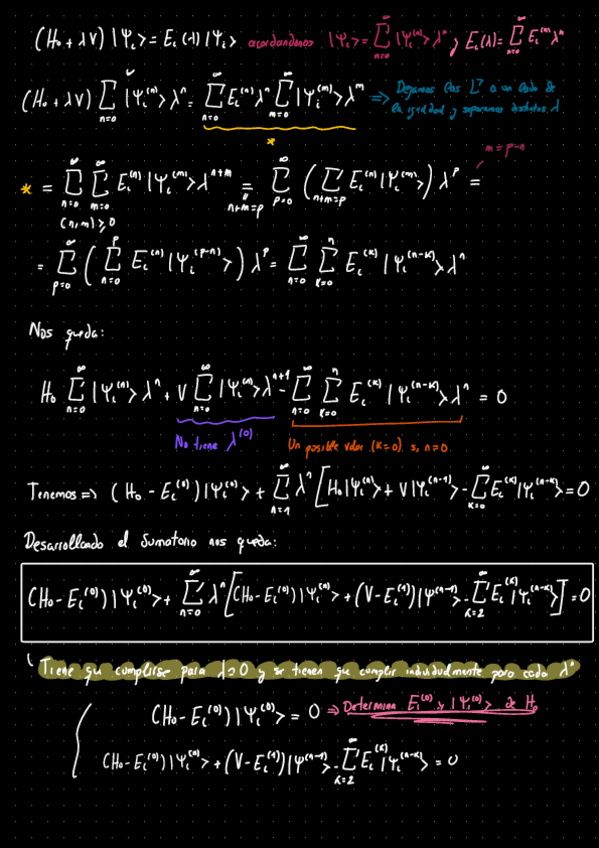 (H₀ + λV) |Ψᵢ> = Eᵢ(λ) |Ψᵢ> acordandonos |Ψᵢ> = Σ_{n=0}^{∞} |Ψᵢ^{(n)}> λⁿ y Eᵢ(λ) = Σ_{n=0}^{∞} Eᵢ^{(n)} λⁿ
(H₀ + λV) Σ_{n=0}^{∞} |Ψᵢ^{(n)}> λⁿ = Σ_{n=0}^{∞} Eᵢ^{(n)} λⁿ Σ_{m=0}^{∞} |Ψᵢ^{(m)}> λᵐ ⇒ Dejamos los Σ a un lado de
la igualdad y separamos distintos λ
*
m = p-n
* = Σ_{n=0}^{∞} Σ_{m=0}^{∞} Eᵢ^{(n)} |Ψᵢ^{(m)}> λ^{n+m} = Σ_{p=0}^{∞} ( Σ_{n+m=p} Eᵢ^{(n)} |Ψᵢ^{(m)}> ) λ^p =
(n,m) ≥ 0 n+m=p
= Σ_{p=0}^{∞} ( Σ_{n=0}^{p} Eᵢ^{(n)} |Ψᵢ^{(p-n)}> ) λ^p = Σ_{n=0}^{∞} Σ_{k=0}^{n} Eᵢ^{(k)} |Ψᵢ^{(n-k)}> λⁿ
Nos queda:
H₀ Σ_{n=0}^{∞} |Ψᵢ^{(n)}> λⁿ + V Σ_{n=0}^{∞} |Ψᵢ^{(n)}> λ^{n+1} - Σ_{n=0}^{∞} Σ_{k=0}^{n} Eᵢ^{(k)} |Ψᵢ^{(n-k)}> λⁿ = 0
No tiene λ^{(0)} Un posible valor (k=0) si n=0
Tenemos ⇒ (H₀ - Eᵢ^{(0)}) |Ψᵢ^{(0)}> + Σ_{n=1}^{∞} λⁿ [H₀|Ψᵢ^{(n)}> + V|Ψᵢ^{(n-1)}> - Σ_{k=0}^{∞} Eᵢ^{(k)} |Ψᵢ^{(n-k)}> = 0
Desarrollando el Sumatorio nos queda:
(H₀ - Eᵢ^{(0)}) |Ψᵢ^{(0)}> + Σ_{n=0}^{∞} λⁿ [(H₀ - Eᵢ^{(0)}) |Ψᵢ^{(n)}> + (V - Eᵢ^{(1)}) |Ψ^{(n-1)}> - Σ_{k=2}^{∞} Eᵢ^{(k)} |Ψᵢ^{(n-k)}>] = 0
Tiene que cumplirse para λ≥0 y se tienen que cumplir individualmente para cada λⁿ
(H₀ - Eᵢ^{(0)}) |Ψᵢ^{(0)}> = 0 ⇒ Determina Eᵢ^{(0)} y |Ψᵢ^{(0)}> de H₀
(H₀ - Eᵢ^{(0)}) |Ψᵢ^{(n)}> + (V - Eᵢ^{(1)}) |Ψ^{(n-1)}> - Σ_{k=2}^{∞} Eᵢ^{(k)} |Ψᵢ^{(n-k)}> = 0